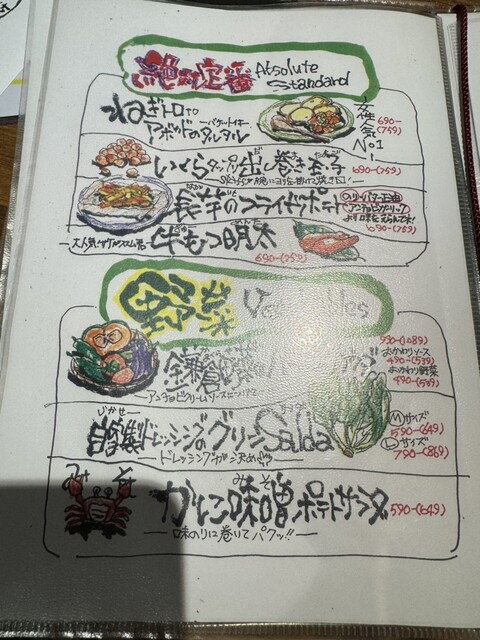 絶対定番 Absolute Standard
ねぎトロと
アボガドのタルタル
―バケット付き―
女性人気No.1
690-(759)
いくらタップリ出し巻き玉子
690-(759)
長芋のフライドポテト
バター正油
アンチョビガーリック
690-(759)
明太
690-(759)
野菜 Ve
鎌倉野菜
990-(1089)
おかわりソース
490-(539)
おかわり野菜
490-(539)
―アンチョビクリームソース
自家製ドレッシングのグリーンSalda
―ドレッシングが決め手!!
Mサイズ
590-(649)
Lサイズ
790-(869)
みそ
かに味噌ポテトサラダ 590-(649)
―味のりに巻いてパクッ!!―